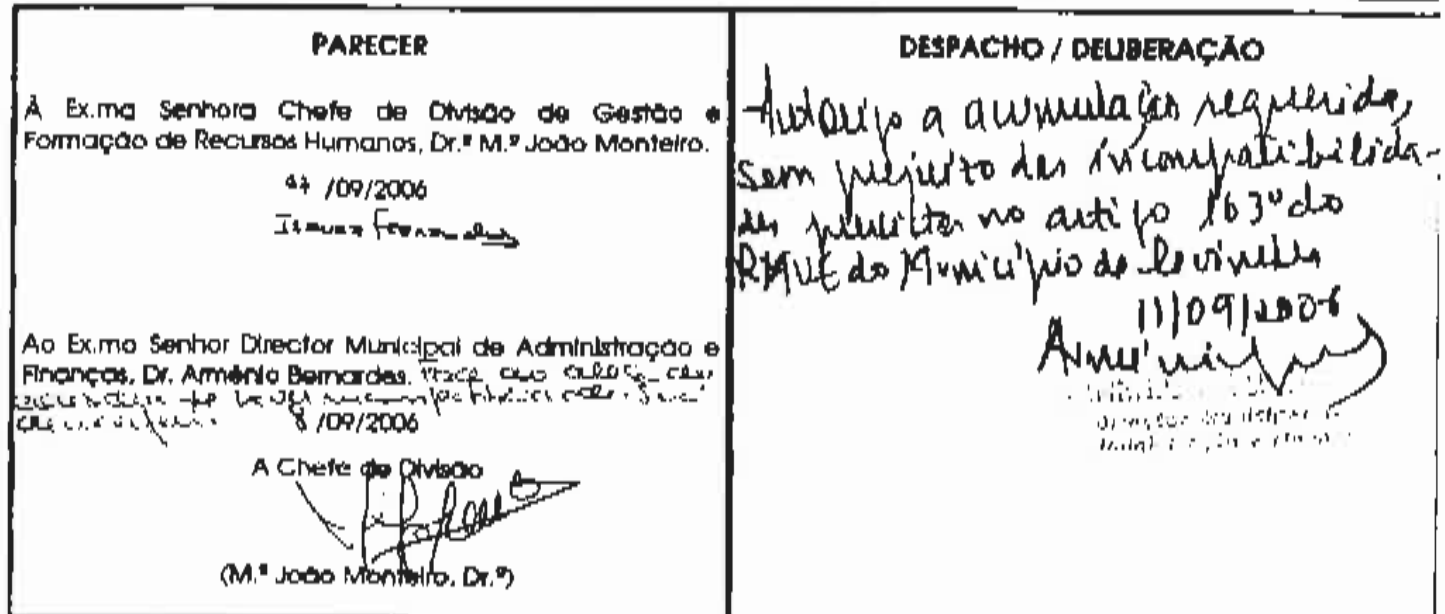 PARECER
À Ex.ma Senhora Chefe de Divisão de Gestão e
Formação de Recursos Humanos, Dr.ª M.ª João Monteiro.
/09/2006
Ao Ex.mo Senhor Director Municipal de Administração e
Finanças, Dr. Arménio Bernardes.
8 /09/2006
A Chefe de Divisão
(M.ª João Monteiro, Dr.ª)
DESPACHO / DELIBERAÇÃO
Autorizo a acumulação requerida,
sem prejuízo das incompatibilida-
des previstas no artigo 163º do
RMUE do Município de
11/09/2006